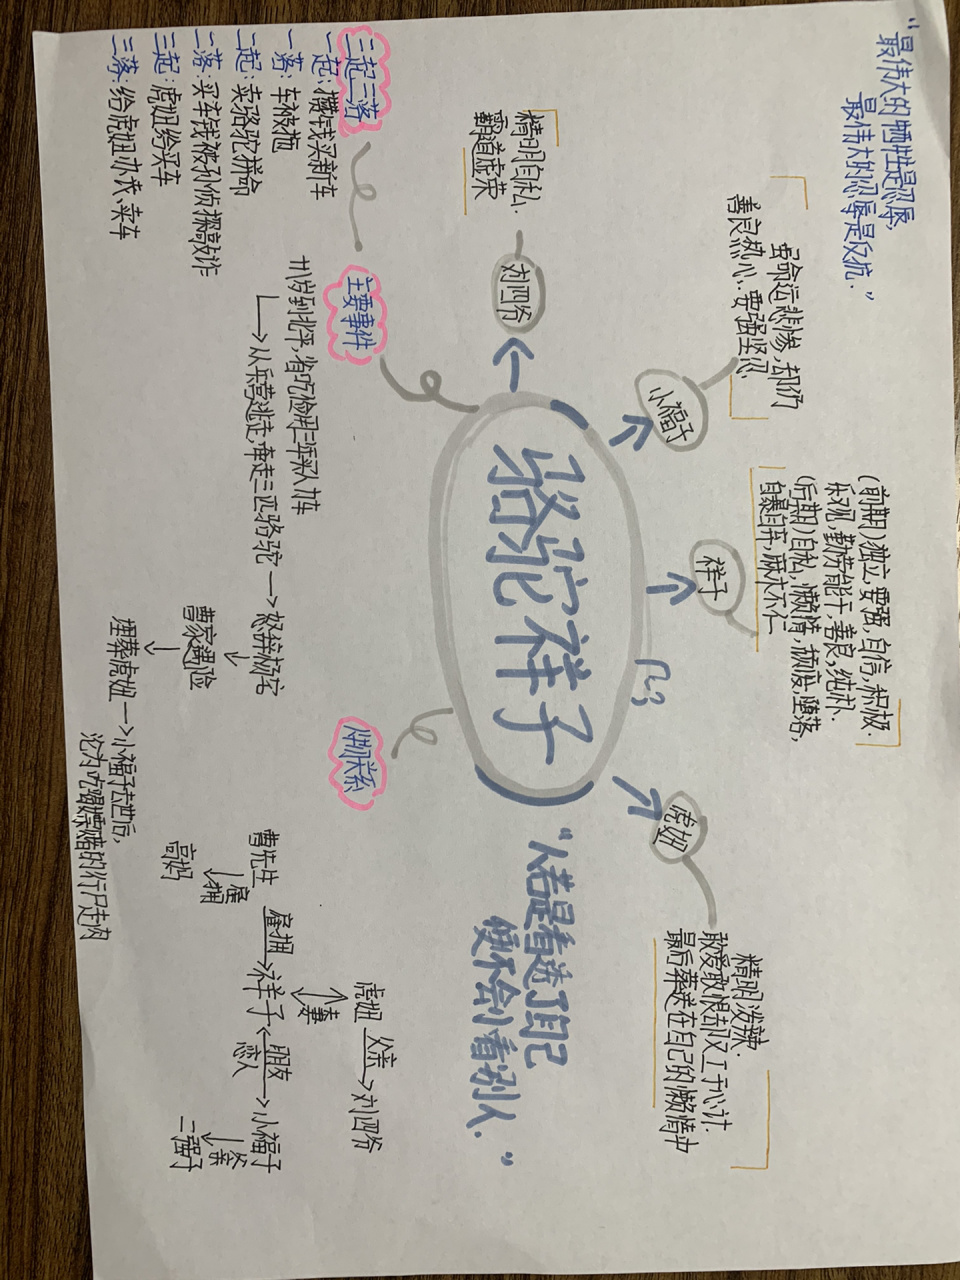 “最伟大的牺牲是忍辱,
最伟大的忍辱是反抗.”
虽命运悲惨,却仍
善良热心.要强坚忍.
小福子
(前期)独立,要强,自信,积极.
乐观,勤劳能干,善良,纯朴.
(后期)自私,懒惰,颓废,堕落,
自暴自弃,麻木不仁
祥子
精明泼辣.
敢爱敢恨却又工于心计.
最后葬送在自己的懒惰中
虎妞
精明自私.
霸道虚荣
刘四爷
骆驼祥子
“人若是看透了自己
便不会小看别人.”
三起三落
一起:攒钱买新车
一落:车被拖
二起:卖骆驼拼命
二落:买车钱被孙侦探敲诈
三起:虎妞给买车
三落:给虎妞办丧、卖车
主要事件
十八岁到北平,省吃俭用三年买人力车
从兵营逃走,牵走三匹骆驼→怒辞杨宅
曹家遇险
埋葬虎妞→小福子去世后,
沦为吃喝嫖赌的行尸走肉
人物关系
虎妞 父亲→刘四爷
夫妻
曹先生 雇拥→祥子 朋友 恋人 小福子
雇拥
高妈
父亲
二强子